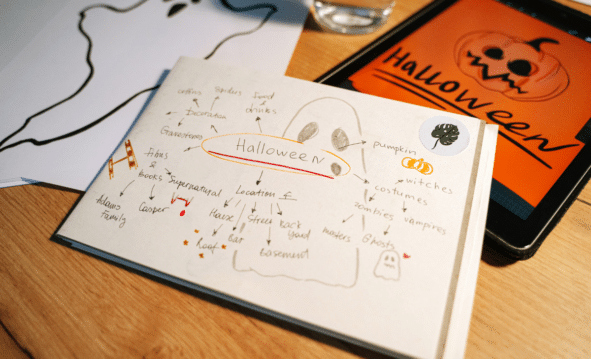 Halloween
Food
&
drinks
Decoration
Gravestones
Halloween
pumpkin
costumes
witches
zombies
vampires
Ghosts
Films
&
books
Supernatural
Location
Adams
Family
Casper
House
Street
Back
yard
Roof
Bar
Basement